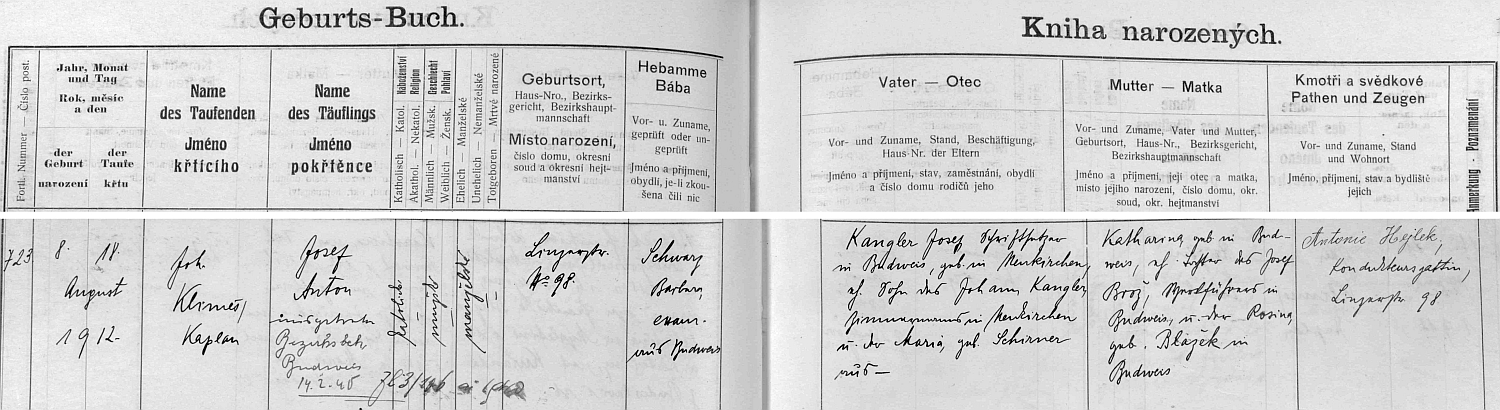 Geburts-Buch.
Kniha narozených.
Fortl. Nummer — Číslo post.
Jahr, Monat
und Tag
Rok, měsíc
a den
der
Geburt
narození
der
Taufe
křtu
Name
des Taufenden
Jméno
křtícího
Name
des Täuflings
Jméno
pokřtěnce
Katholisch — Katol.
Akathol. — Nekatol.
Náboženství
Religion
Männlich — Mužsk.
Weiblich — Žensk.
Geschlecht
Pohlaví
Ehelich — Manželské
Unehelich — Nemanželské
Totgeboren — Mrtvě narozené
Geburtsort,
Haus-Nro., Bezirks-
gericht, Bezirkshaupt-
mannschaft
Místo narození,
číslo domu, okresní
soud a okresní hejt-
manství
Hebamme
Bába
Vor- u. Zuname,
geprüft oder un-
geprüft
Jméno a příjmení,
obydlí, je-li zkou-
šena čili nic
Vater — Otec
Vor- und Zuname, Stand, Beschäftigung,
Haus-Nr. der Eltern
Jméno a příjmení, stav, zaměstnání, obydlí
a číslo domu rodičů jeho
Mutter — Matka
Vor- und Zuname, Vater und Mutter,
Geburtsort, Haus-Nro., Bezirksgericht,
Bezirkshauptmannschaft
Jméno a příjmení, její otec a matka,
místo jejího narození, číslo domu, okr.
soud, okr. hejtmanství
Kmotři a svědkové
Pathen und Zeugen
Vor- und Zuname, Stand
und Wohnort
Jméno, příjmení, stav a bydliště
jejich
Anmerkung - Poznamenání
723
8.
18.
August
1912.
Joh.
Klimeš,
Kaplan
Josef
Anton
Budweis
14.2.40
katolické
mužské
manželské
Linzerstr.
No 98.
Schwarz
Barbara,
exam.
aus Budweis
Kangler Josef Schriftsetzer
in Budweis, geb. in Neukirchen,
eh. Sohn des Johann Kangler,
Zimmermanns in Neukirchen
u. der Maria, geb. Schirner
aus —
Katharina geb. in Bud-
weis, eh. Tochter des Josef
Brož, Werkführers in
Budweis, u. der Rosina,
geb. Blažek in
Budweis
Antonie Hejlek,
Kondukteursgattin,
Linzerstr 98